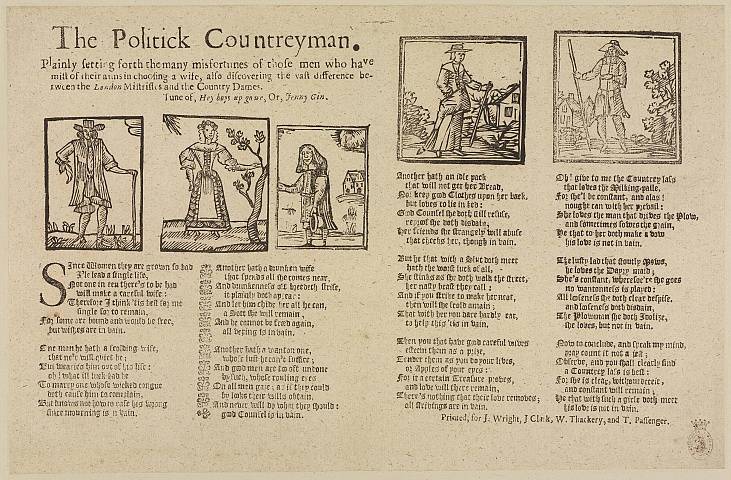 The Politick Countreyman.
Plainly setting forth the many misfortunes of those men who have
mist of their aims in choosing a wife, also discovering the vast difference be-
tween the London Mistrisses and the Country Dames.
Tune of, Hey boys up go we, Or, Jenny Gin.
Since Women they are grown so bad
I'le lead a single life,
Not one in ten there's to be had
will make a careful wife:
Therefore I think 'tis best for me
single for to remain,
For some are bound and would be free,
but wishes are in vain.
One man he hath a scolding wife,
that ne'r will quiet be;
But wearies him out of his life:
oh! what ill luck had he
To marry one whose wicked tongue
doth cause him to complain,
But knows not how to ease his wrong
since mourning is in vain.
Another hath a drunken wife
that spends all she comes near,
And drunkenness oft breedeth strife,
it plainly doth appear:
And let him chide her all he can,
a Sott she will remain,
And he cannot be freed again,
all vexing is in vain.
Another hath a wanton one,
whose lust he can't suffer;
And good men are too oft undone
by such, whose rouling eyes
On all men gaze, as if they could
by looks their wills obtain,
And never will do what they should:
good Counsel is in vain.
Another hath an idle pack
that will not get her Bread,
Nor keep good Clothes upon her back,
but loves to lie in bed:
God Counsel she doth still refuse,
reproof she doth disdain,
Her friends she strangely will abuse
that checks her, though in vain.
But he that with a Slut doth meet
hath the worst luck of all,
She stinks as she doth walk the street,
her nasty beast they call:
And if you strive to make her neat,
then will she scold amain;
That with her you dare hardly eat,
to help this 'tis in vain.
Then you that have good careful wives
esteem them as a prize,
Tender them as you do your lives,
or Apples of your eyes:
For it a certain Treasure proves,
and love will there remain,
There's nothing that their love removes;
all strivings are in vain.
Oh! give to me the Countrey lass
that loves the Milking-paile,
For she'l be constant, and alas!
nought can with her prevail:
She loves the man that drives the Plow,
and sometimes sowes the grain,
He that to her doth make a vow
his love is not in vain.
The lusty lad that stoutly Mows,
he loves the Dayry maid;
She's constant, wheresoe're she goes
no wantonness is played:
All lasseness she doth clear despise,
and looseness doth disdain,
The Plowman she doth Idolize,
she loves, but not in vain.
Now to conclude, and speak my mind,
pray count it not a jest;
Observe, and you shall clearly find
a Countrey lass is best:
For she is clear, without deceit,
and constant will remain;
He that with such a girle doth meet
his love is not in vain.
Printed, for J. Wright, J Clark, W. Thackery, and T. Passenger.